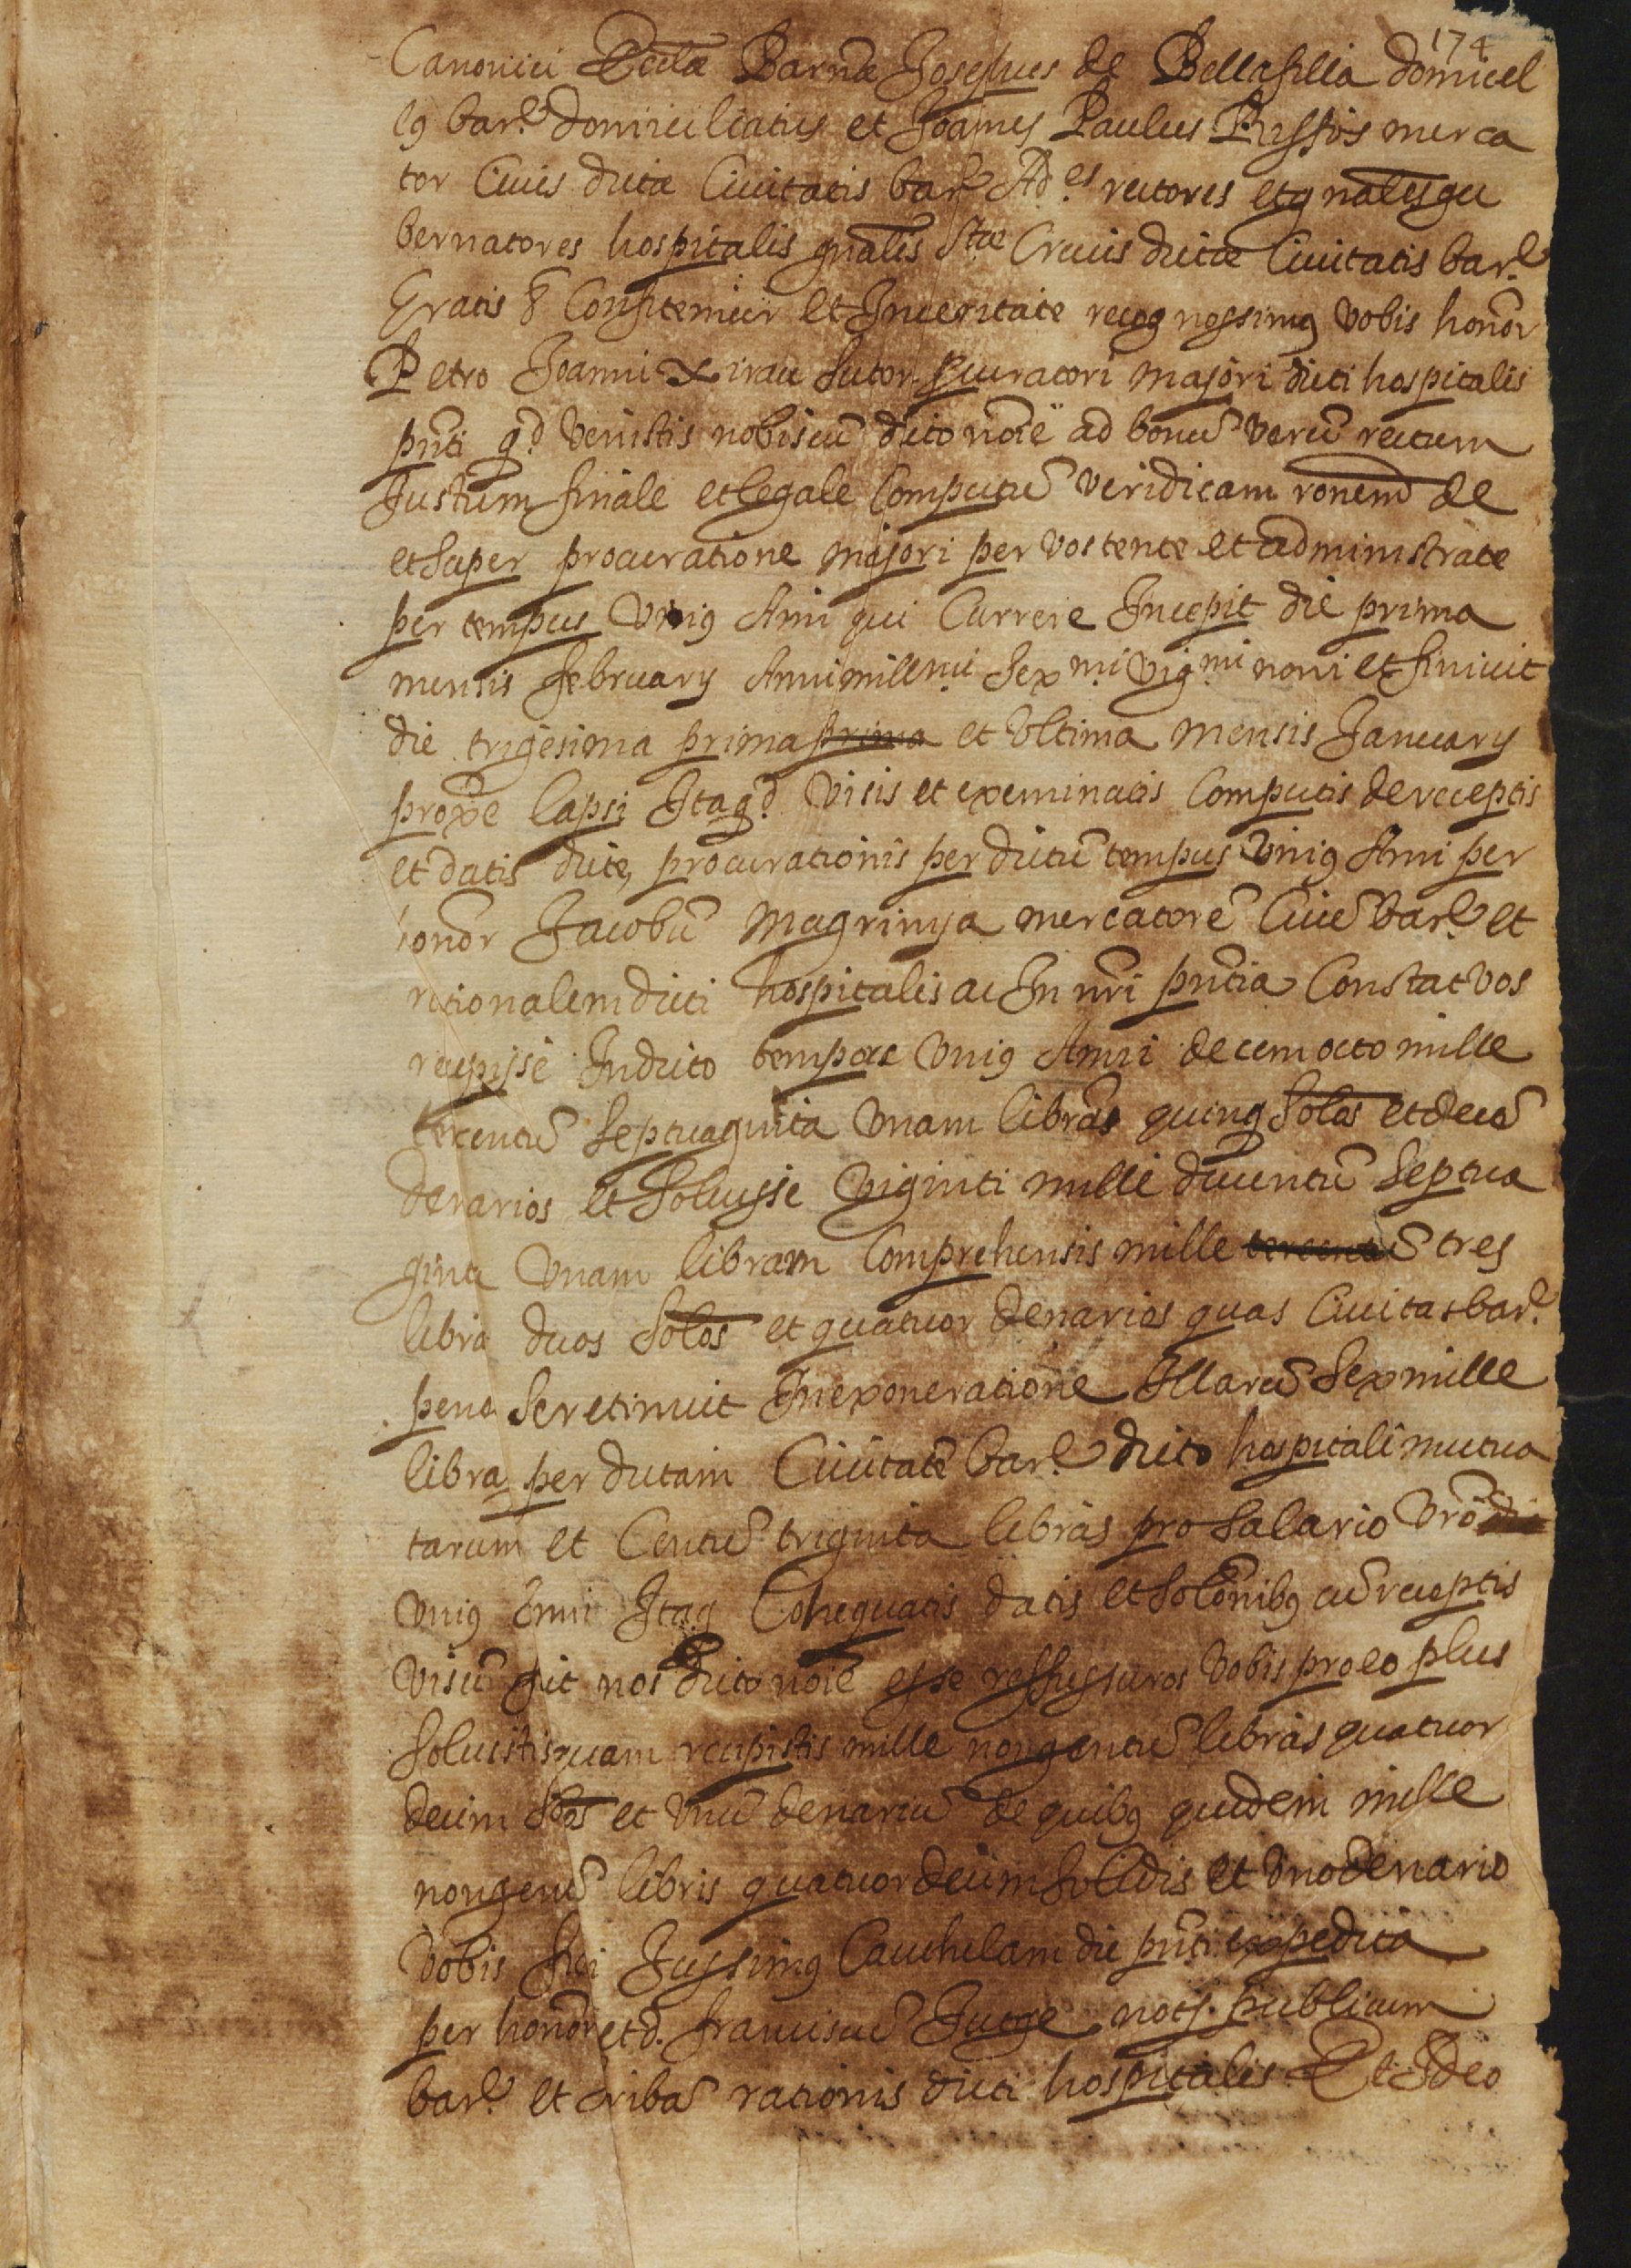 174
Canonici Ecclæ Barnæ Josephus de Bellafilla domicel
lꝰ bar. domiciliatus et Joannes Paulus Rissos merca
tor Civis dictæ Civitatis bar. Ad.es rectores et gnales gu
bernatores hospitalis gnalis Stæ Crucis dictæ Civitatis bar.
Gratis & Confitemur et In veritate recognossimꝰ vobis honor
Petro Joanni Xirau sutori procuratori majori dicti hospitalis
pnti qd. venistis nobiscū dicto noīe ad bonū verū rectum
Justum finale et legale Computū veridicam ronem de
et super procuratione majori per vos tente et administrate
per tempus Vniꝰ Anni qui Currere Incepit die prima
mensis february Anni mill.mi Sex.mi vig.mi noni et finivit
die trigesima prima prima et Vltima mensis January
proxe lapsi Itaqd. Visis et exeminatis Computis de receptis
et datis dicte, procurationis per dictū tempus Vniꝰ Anni per
honor Jacobū Magrinya mercatorē Civē bar. et
rationalem dicti hospitalis ac In nri pntia Constat vos
recepisse In dicto tempore Vniꝰ Anni decem octo mille
tercentū Septuaginta Vnam libras quinq Solos et decē
denarios et Soluisse viginti mille ducentū Septua
ginta Vnam libram Comprehensis mille tercentū tres
libra duos Solos et quatuor denarios quas Civitas bar.
pena Se retinuit In exoneratione Illarū Sex mille
libra per dictam Civitatē bar. dicto hospitali mutua
tarum et Centū triginta libras pro Salario vro
Vniꝰ Anni Itaq Cohequatis datis et Solonibꝰ cū receptis
Visū fuit nos dicto noīe esse reffussuros vobis pro eo plus
Soluistis quam recepistis mille nongentū libras quatuor
decim Solos et Vnū denariū de quibꝰ quidem mille
nongentū libris quatuordecim Solidis et Vno denario
Vobis fieri Jussimꝰ Cauthelam die pnti expedita
per honor et d. franciscū Jutge not. publicum
bar. et scribā rationis dicti hospitalis Et Ideo